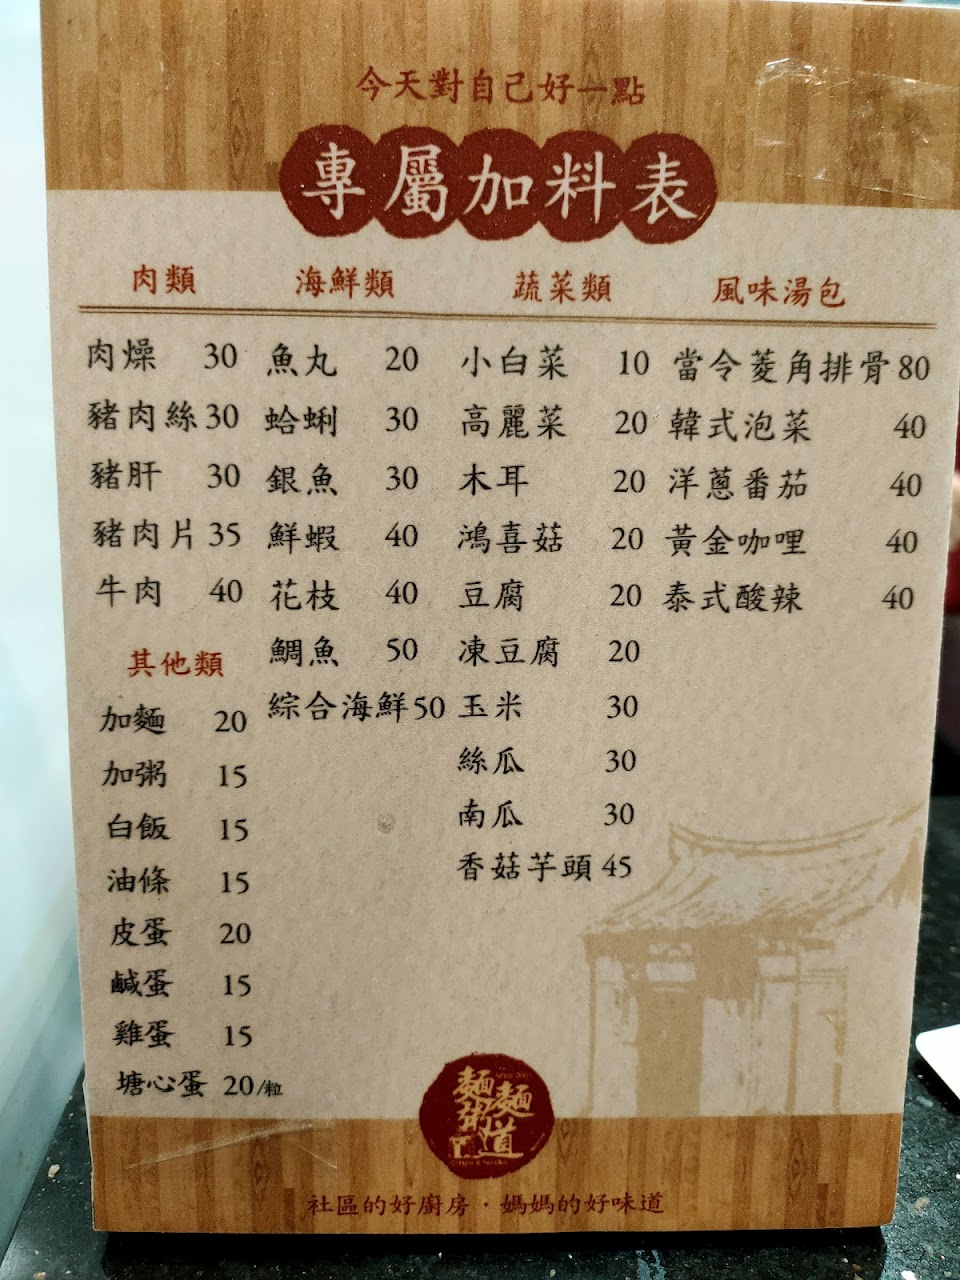 今天對自己好一點
專屬加料表
肉類
肉燥 30
豬肉絲 30
豬肝 30
豬肉片 35
牛肉 40
其他類
加麵 20
加粥 15
白飯 15
油條 15
皮蛋 20
鹹蛋 15
雞蛋 15
塘心蛋 20/粒
海鮮類
魚丸 20
蛤蜊 30
銀魚 30
鮮蝦 40
花枝 40
鯛魚 50
綜合海鮮 50
蔬菜類
小白菜 10
高麗菜 20
木耳 20
鴻喜菇 20
豆腐 20
凍豆腐 20
玉米 30
絲瓜 30
南瓜 30
香菇芋頭 45
風味湯包
當令菱角排骨 80
韓式泡菜 40
洋蔥番茄 40
黃金咖哩 40
泰式酸辣 40
麵麵
粥道
社區的好廚房·媽媽的好味道